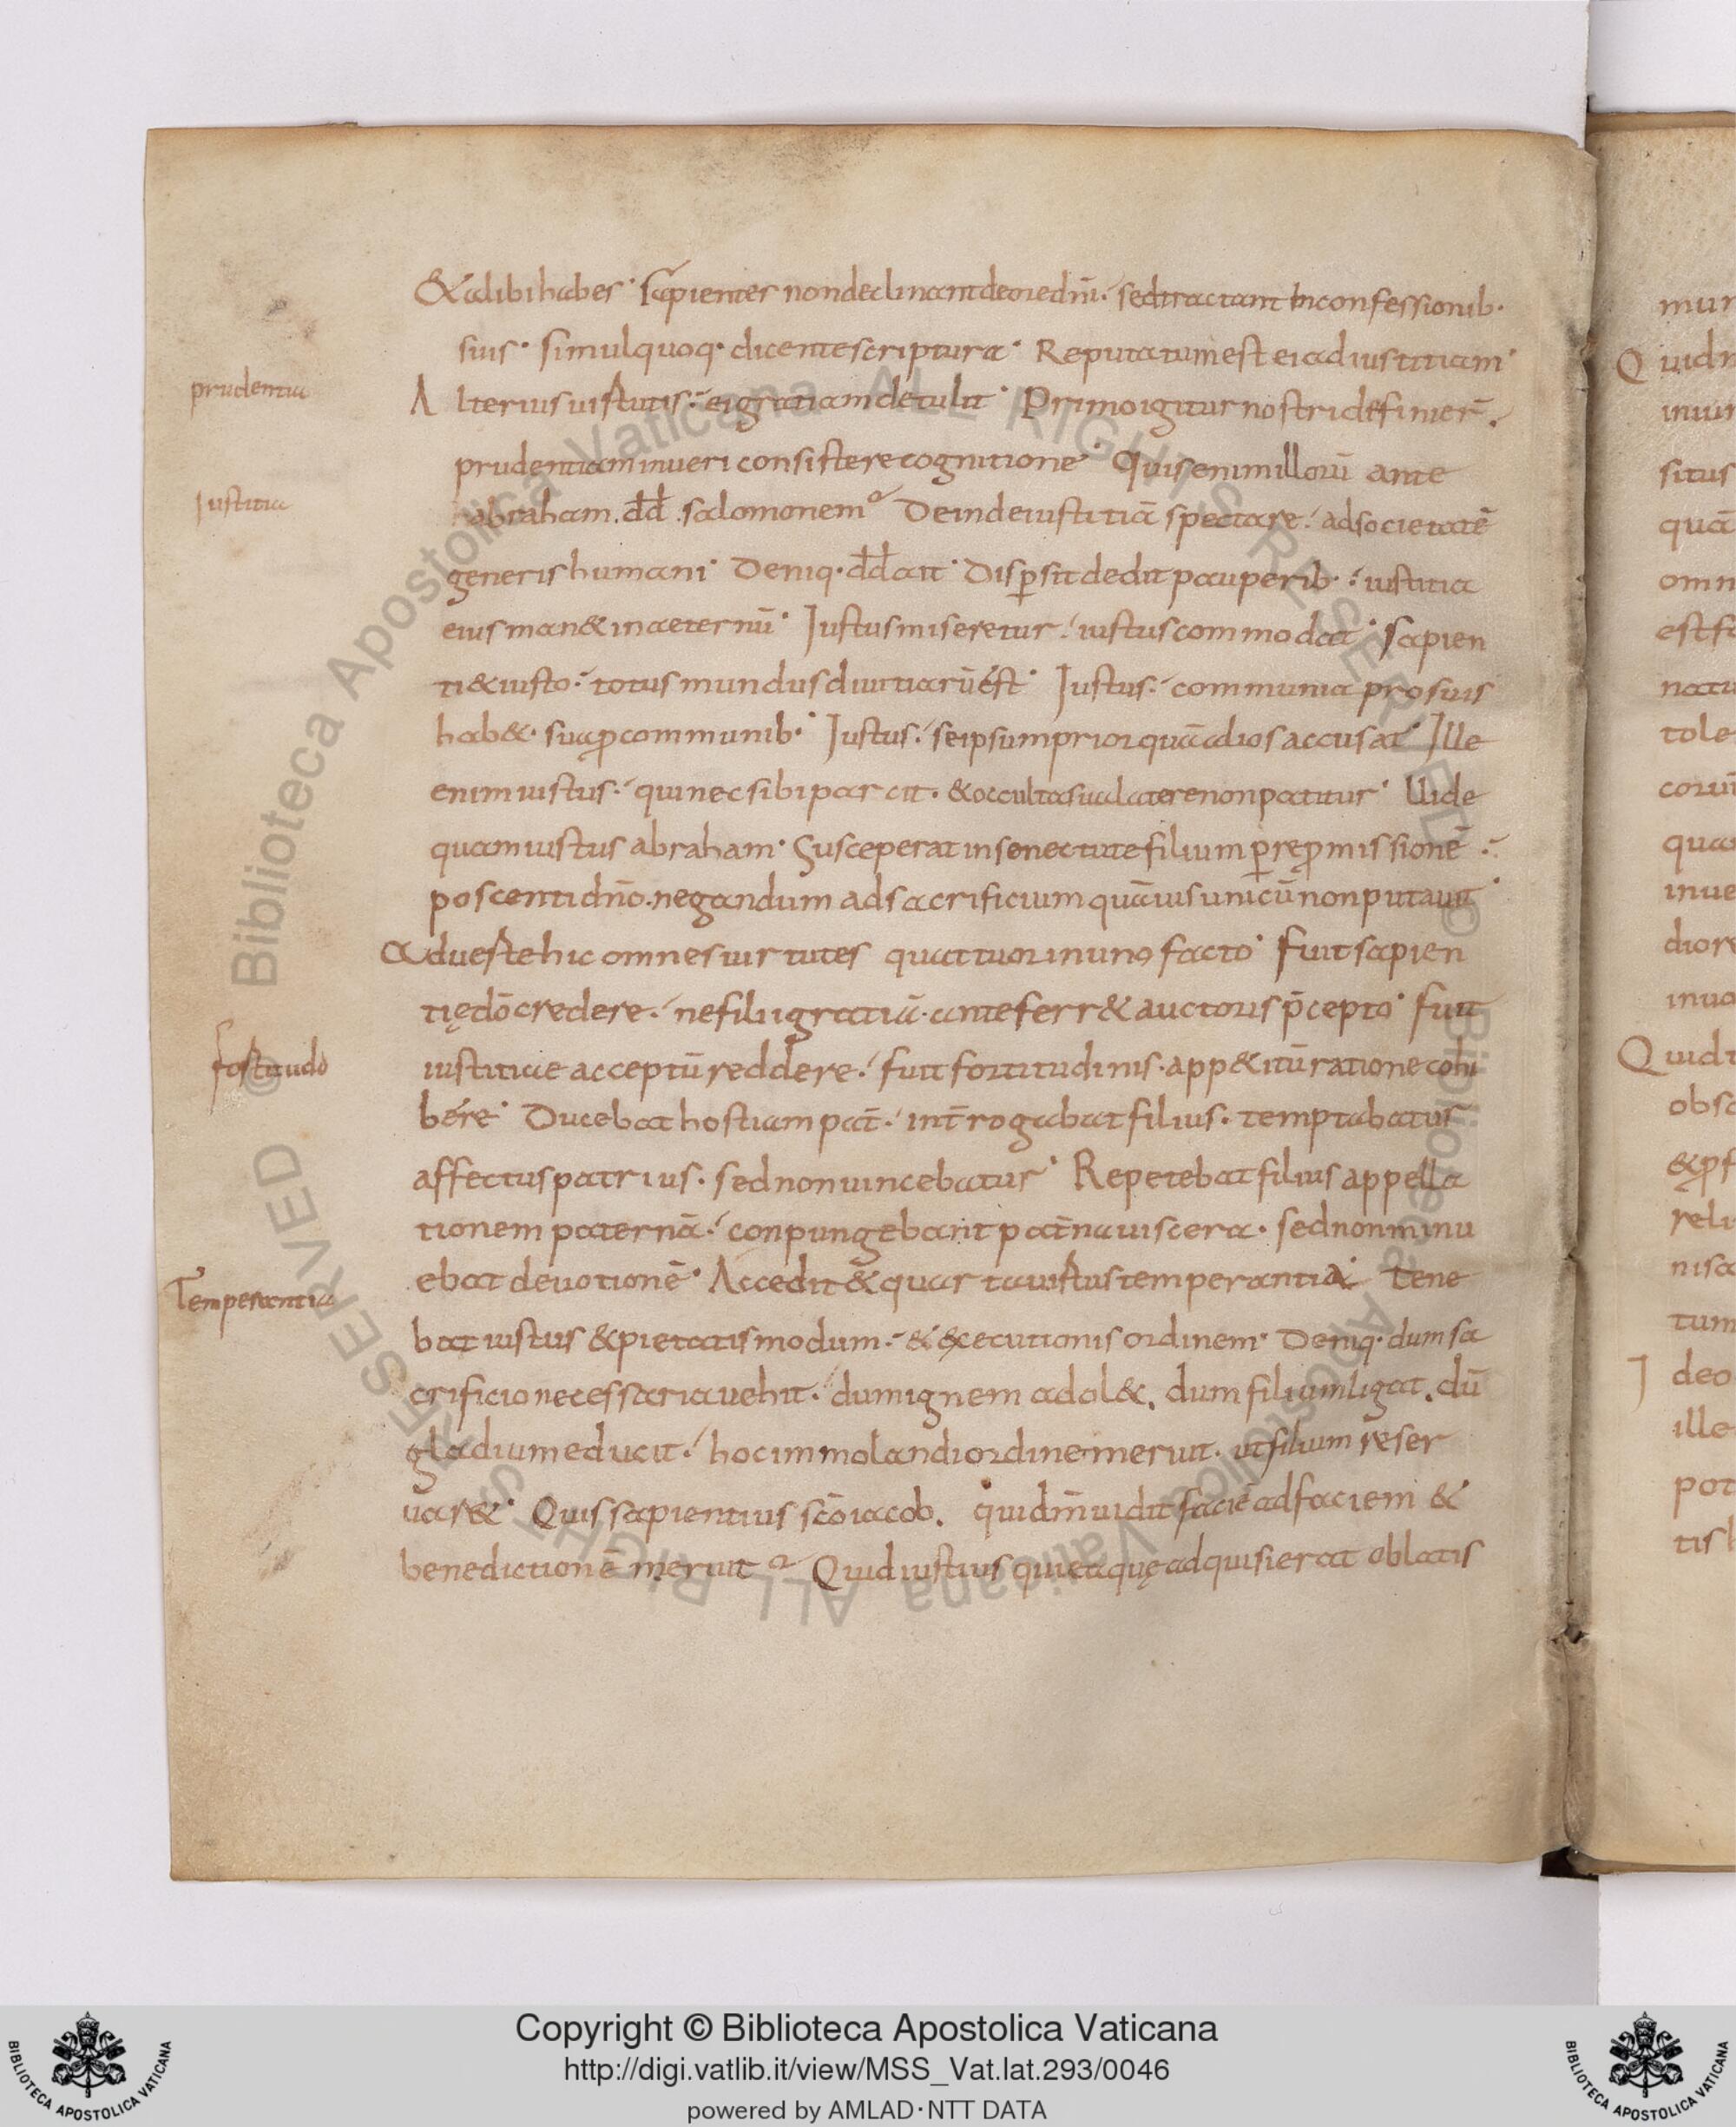 & alibi habes· Sapientes non declinant de ore dñi· sed tractant in confessionib·
suis· simul quoq· dicente scriptura· Reputatum est ei ad iustitiam·
prudentia
Alterius uirtutis· ei gratiam detulit· Primo igitur nostri definier̄·
prudentiam in ueri consistere cognitione· Quis enim illorū ante
Iustitia
abraham· dd̄· salomonem? Deinde iustitiā spectare· ad societatē
generis humani· Deniq· dd̄ ait· Disp̱sit dedit pauperib· iustitia
eius man& in aeternū· Iustus miseretur· iustus commodat· Sapien
ti & iusto· totus mundus diuitiarū est· Iustus· communia pro suis
hab&· sua ꝓ communib· Iustus· se ipsum prior quā alios accusat· Ille
enim iustus· qui nec sibi parcit· & occulta sua latere non patitur· Uide
quam iustus abraham· Susceperat in senectute filium ꝑ reꝓmissionē·
poscenti dño· negandum ad sacrificium quāuis unicū non putauit·
Aduerte hic omnes uirtutes quattuor in uno facto· Fuit sapien
tię dō credere· ne filii gratiā· anteferr& auctoris p̄cepto· Fuit
fortitudo
iustitiae acceptū reddere· fuit fortitudinis· app&itū ratione cohi
bere· Ducebat hostiam pat̄· int̄rogabat filius· temptabatur
affectus patrius· sed non uincebatur· Repetebat filius appella
tionem paternā· conpungebant pat̄na uiscera· sed non minu
Temperantia
ebat deuotionē· Accedit & quarta uirtus temperantia· Tene
bat iustus & pietatis modum· & executionis ordinem· Deniq· dum sa
crificio necessaria uehit· dum ignem adol&· dum filium ligat· dū
gladium educit· hoc immolandi ordine meruit· ut filium reser
uar&· Quis sapientius scō iacob· qui dm̄ uidit faciē ad faciem &
benedictionē meruit? Quid iustius qui ea quę adquisierat oblatis
mun
inuir
situs
quā
omn
natu
tole
inue
diore
Quid
ille
pot
Biblioteca Apostolica Vaticana ALL RIGHTS RESERVED © Biblioteca Apostolica Vaticana ALL RIGHTS RESERVED ©
Copyright © Biblioteca Apostolica Vaticana
http://digi.vatlib.it/view/MSS_Vat.lat.293/0046
powered by AMLAD·NTT DATA
BIBLIOTECA APOSTOLICA VATICANA
BIBLIOTECA APOSTOLICA VATICANA